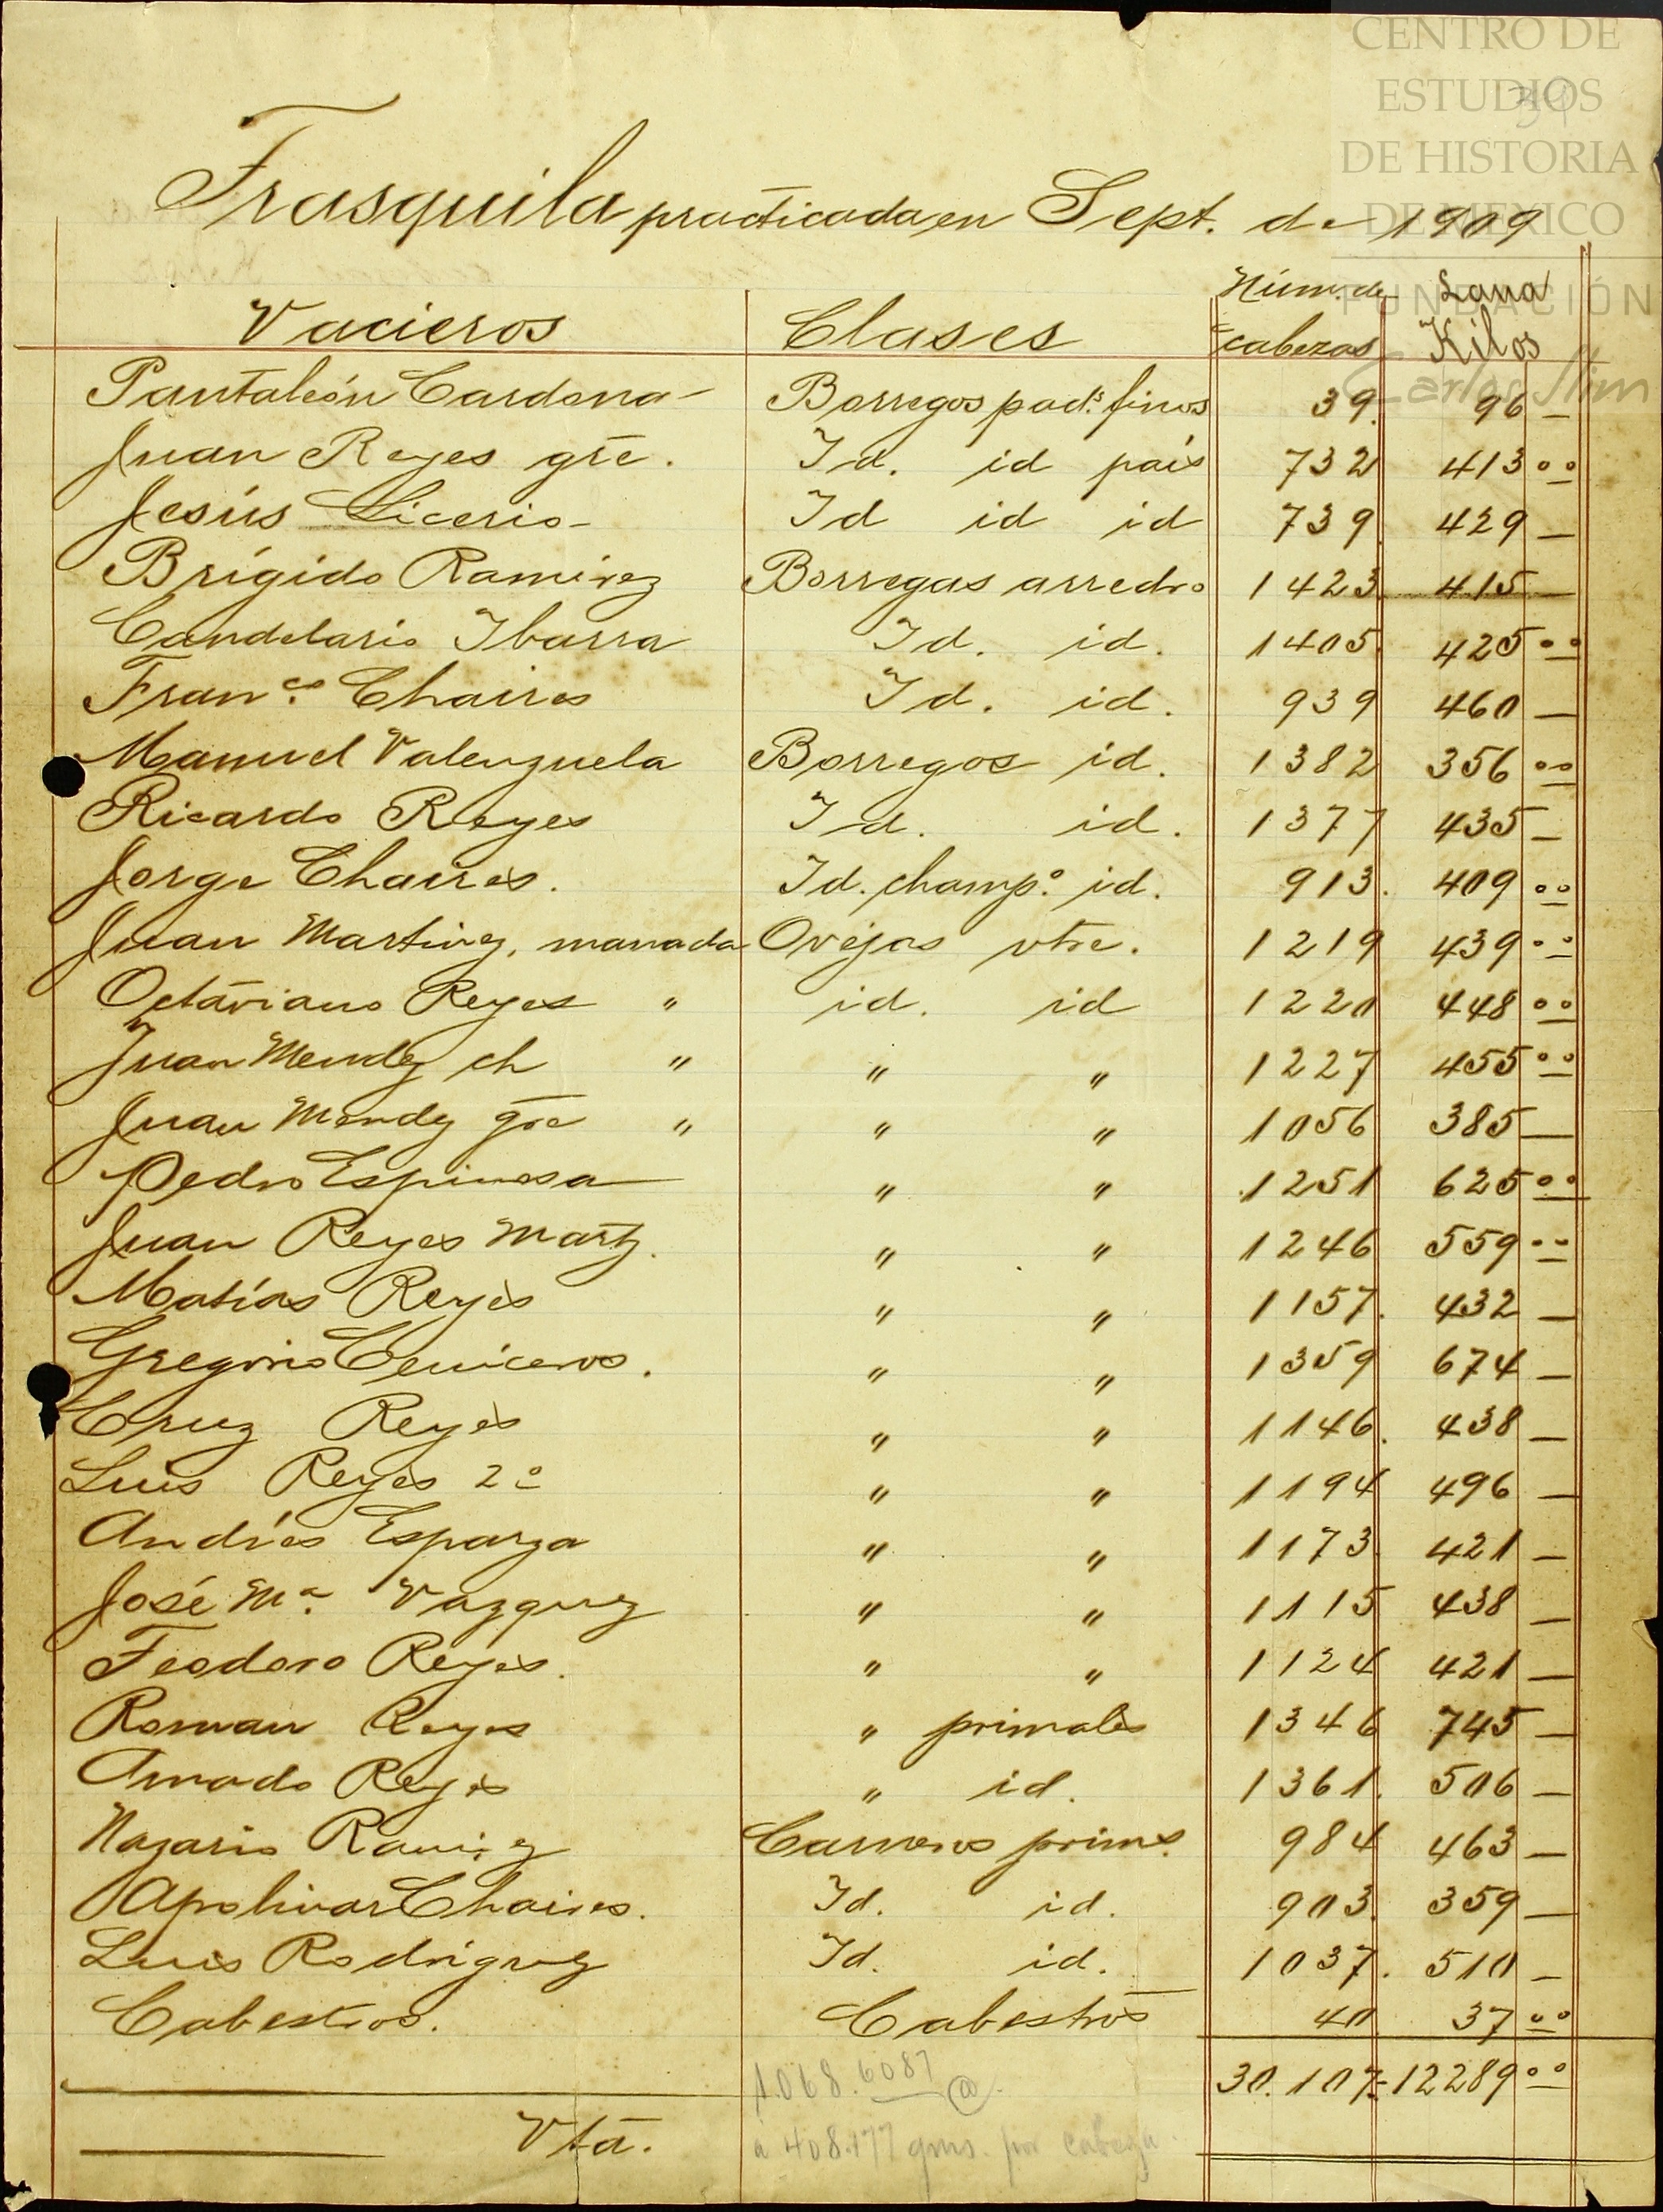 CENTRO DE
ESTUDIOS
DE HISTORIA
DE MEXICO
FUNDACIÓN
Carlos Slim
39
Trasquila practicada en Sept. de 1909
Vacieros Clases Núm. de cabezas Lana Kilos
Pantaleón Cardona Borregos pads. finos 39. 96 —
Juan Reyes gde. Id. id país 732 413 00
Jesús Licerio Id id id 739. 429 —
Brígido Ramirez Borregas arredro 1423. 415 —
Candelario Ibarra Id. id. 1405. 425 00
Franco. Chaires Id. id. 939 460 —
Manuel Valenzuela Borregos id. 1382 356 00
Ricardo Reyes Id. id. 1377 435 —
Jorge Chaires. Id. champo. id. 913. 409 00
Juan Martinez, manada Ovejas vtre. 1219 439 00
Octaviano Reyes " id. id 1220 448 00
Juan Mendez ch " " " 1227 455 00
Juan Mendez gde " " " 1056 385 —
Pedro Espinosa " " 1251 625 00
Juan Reyes Martz. " " 1246 559 00
Matías Reyes " " 1157. 432 —
Gregorio Ceniceros. " " 1359 674 —
Cruz Reyes " " 1146. 438 —
Luis Reyes 2o " " 1194 496 —
Andrés Esparza " " 1173. 421 —
José Ma. Vazquez " " 1115 438 —
Teodoro Reyes. " " 1124 421 —
Roman Reyes " primales 1346 745 —
Amado Reyes " id. 1361. 506 —
Nazario Ramirez Carneros prims. 984 463 —
Apolinar Chaires. Id. id. 903. 359 —
Luis Rodriguez Id. id. 1037. 510 —
Cabestros. Cabestros 40 37 00
30.107= 12289 00
1.068.6087 @.
Vta. a 408.177 gms. por cabeza.